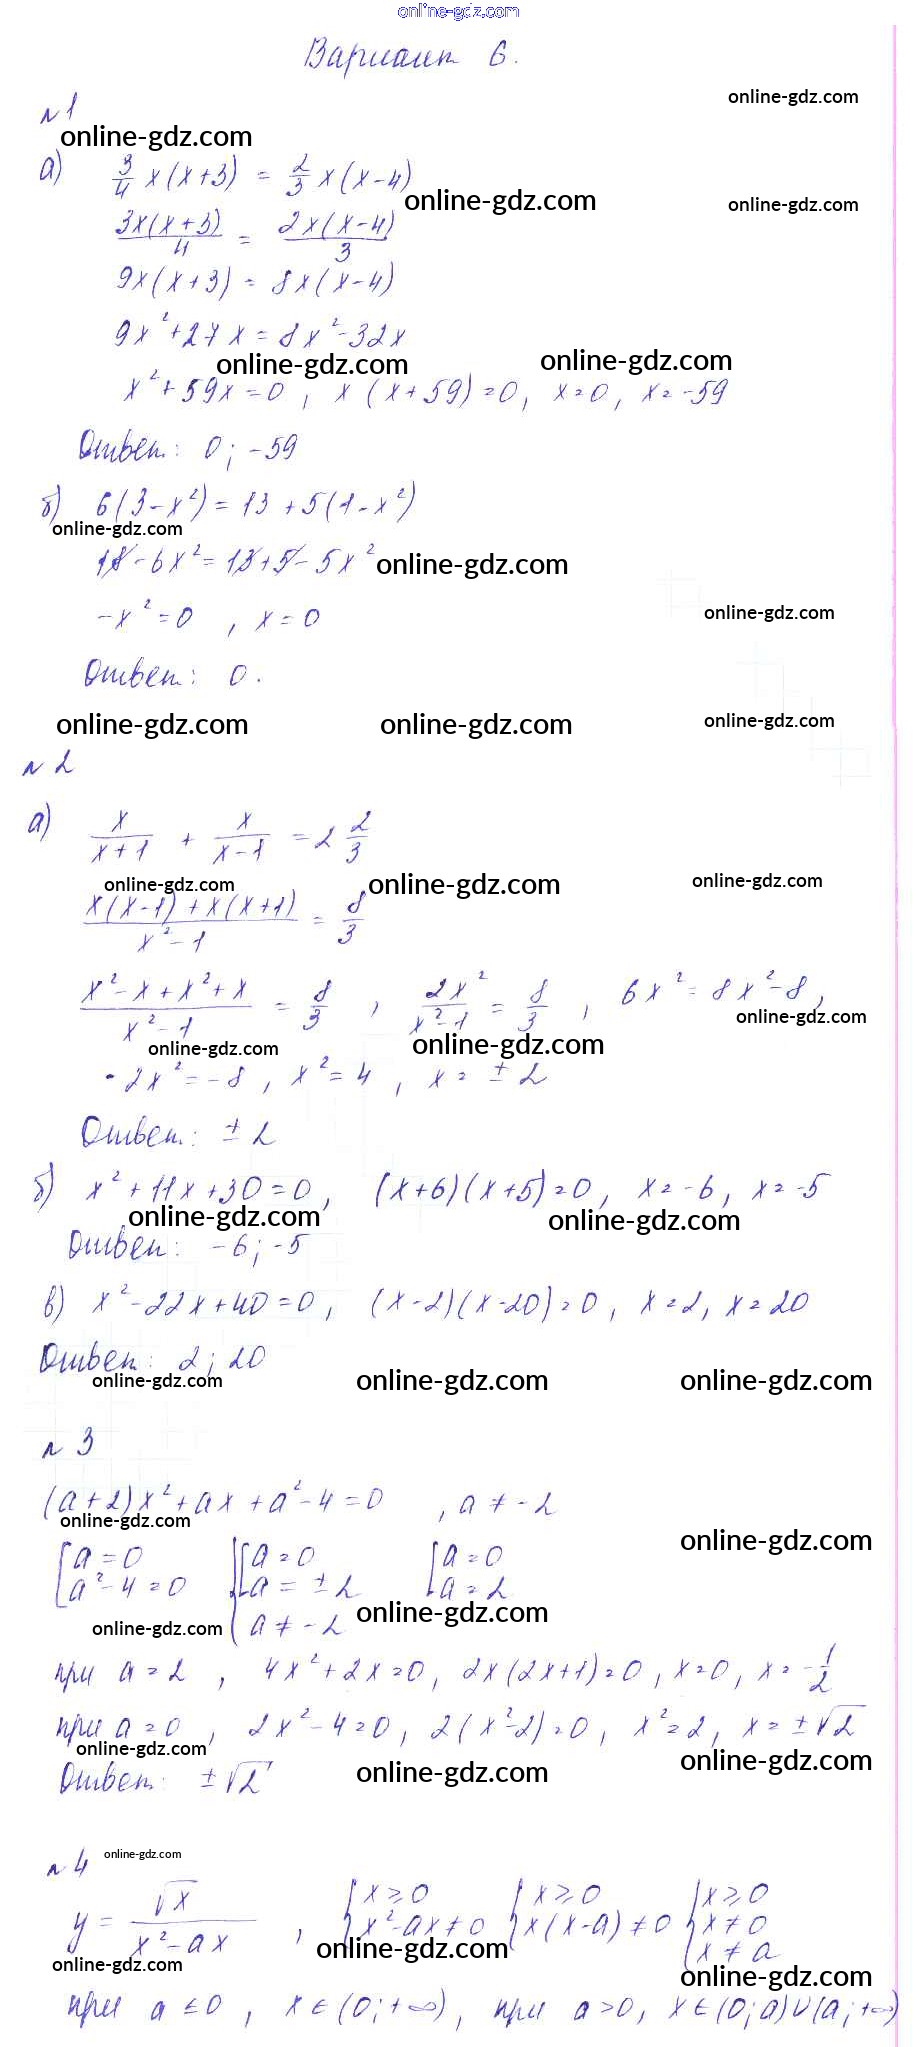 online-gdz.com
Вариант 6.
online-gdz.com
№1
online-gdz.com
а) 3/4 x(x+3) = 2/3 x(x-4)
online-gdz.com
online-gdz.com
3x(x+3)/4 = 2x(x-4)/3
9x(x+3) = 8x(x-4)
9x²+27x = 8x²-32x
online-gdz.com
online-gdz.com
x²+59x=0, x(x+59)=0, x=0, x=-59
Ответ: 0; -59
б) 6(3-x²) = 13+5(1-x²)
online-gdz.com
18-6x² = 13+5-5x²
online-gdz.com
-x²=0, x=0
online-gdz.com
Ответ: 0.
online-gdz.com
online-gdz.com
online-gdz.com
№2
а) x/(x+1) + x/(x-1) = 2 2/3
online-gdz.com
online-gdz.com
online-gdz.com
(x(x-1)+x(x+1))/(x²-1) = 8/3
(x²-x+x²+x)/(x²-1) = 8/3, 2x²/(x²-1) = 8/3, 6x²=8x²-8,
online-gdz.com
online-gdz.com
online-gdz.com
-2x²=-8, x²=4, x=±2
Ответ: ±2
б) x²+11x+30=0, (x+6)(x+5)=0, x=-6, x=-5
online-gdz.com
online-gdz.com
Ответ: -6; -5
в) x²-22x+40=0, (x-2)(x-20)=0, x=2, x=20
Ответ: 2; 20
online-gdz.com
online-gdz.com
online-gdz.com
№3
(a+2)x²+ax+a²-4=0, a≠-2
online-gdz.com
online-gdz.com
[a=0 {[a=0 [a=0
a²-4=0 a=±2 a=2
online-gdz.com
online-gdz.com
a≠-2
при a=2, 4x²+2x=0, 2x(2x+1)=0, x=0, x=-1/2
при a=0, 2x²-4=0, 2(x²-2)=0, x²=2, x=±√2
online-gdz.com
online-gdz.com
online-gdz.com
Ответ: ±√2
№4
online-gdz.com
y = √x/(x²-ax), {x≥0 {x≥0 {x≥0
x²-ax≠0 x(x-a)≠0 x≠0
online-gdz.com
online-gdz.com
x≠a
online-gdz.com
при a≤0, x∈(0;+∞), при a>0, x∈(0;a)∪(a;+∞)